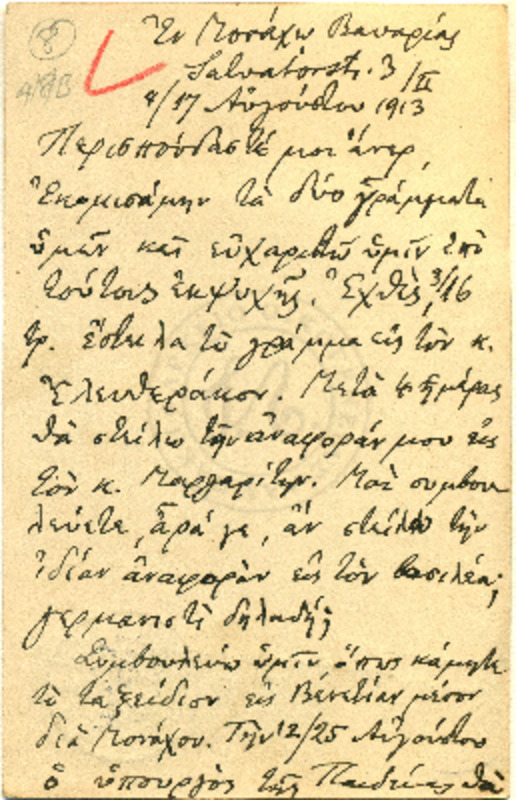 8
4/8/13
Ἐν Μονάχῳ Βαυαρίας
Salvatorstr. 3/II
4/17 Αὐγούστου 1913
Περισπούδαστέ μοι ἄνερ,
Ἐκομισάμην τὰ δύο γράμματα
ὑμῶν καὶ εὐχαριστῶ ὑμῖν ἐπὶ
τούτοις ἐκ ψυχῆς. Ἐχθὲς 3/16
τρ. ἔστειλα τὸ γράμμα εἰς τὸν κ.
Ἐλευθεράκον. Μετὰ 4 ἡμέρας
θὰ στείλω τὴν ἀναφοράν μου εἰς
τὸν κ. Μαργαρίτην. Μοὶ συμβου
λεύετε, ἆρά γε, ἂν στείλω τὴν
ἰδίαν ἀναφορὰν εἰς τὸν βασιλέα;
γερμανιστὶ δηλαδή;
Συμβουλεύω ὑμῖν ὅπως κάμητε
τὸ ταξείδιον εἰς Βενετίαν μέσον
διὰ Μονάχου. Τὴν 12/25 Αὐγούστου
ὁ ὑπουργὸς τῆς Παιδείας θὰ